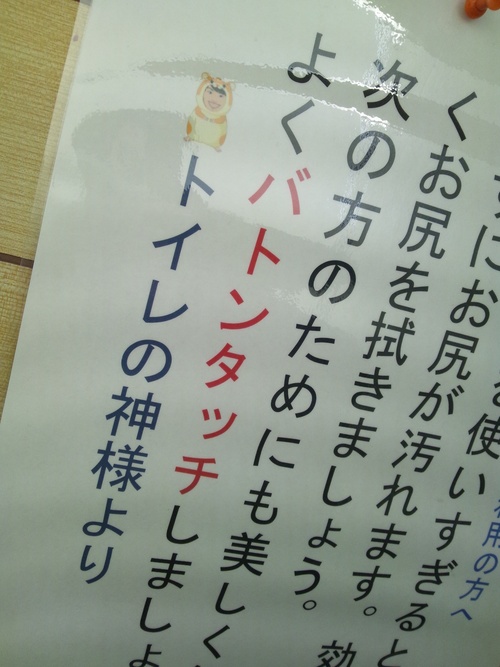 利用の方へ
使いすぎると
にお尻が汚れます。効
くお尻を拭きましょう。
次の方のためにも美しく
よくバトンタッチしましょ
トイレの神様より